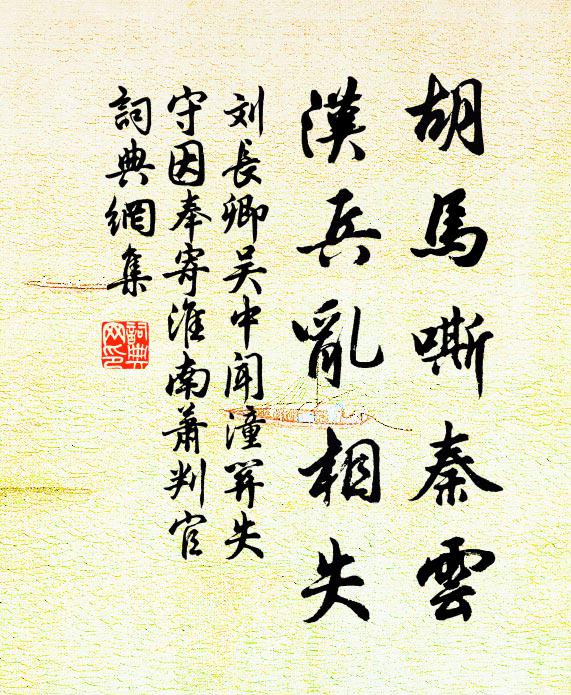 胡馬嘶秦雲
漢兵亂相失
刘長卿吴中闻潼関失
守因奉寄淮南萧判官
詞典網集
詞典网印